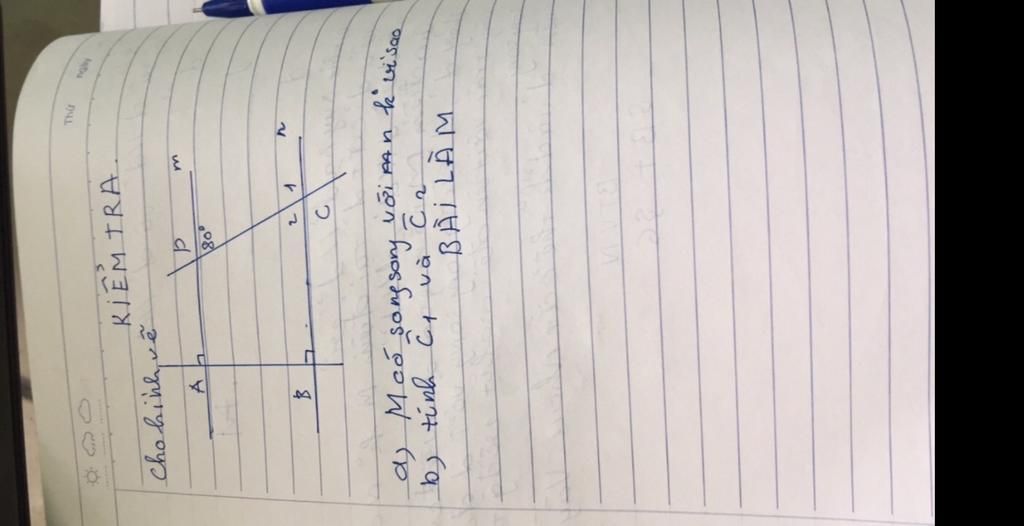 Thứ
ngày
KIỂM TRA
Cho hình vẽ
A
D
80°
m
B
2
1
C
n
a) M có song song với n k vì sao
b) tính C1 và C2
BÀI LÀM